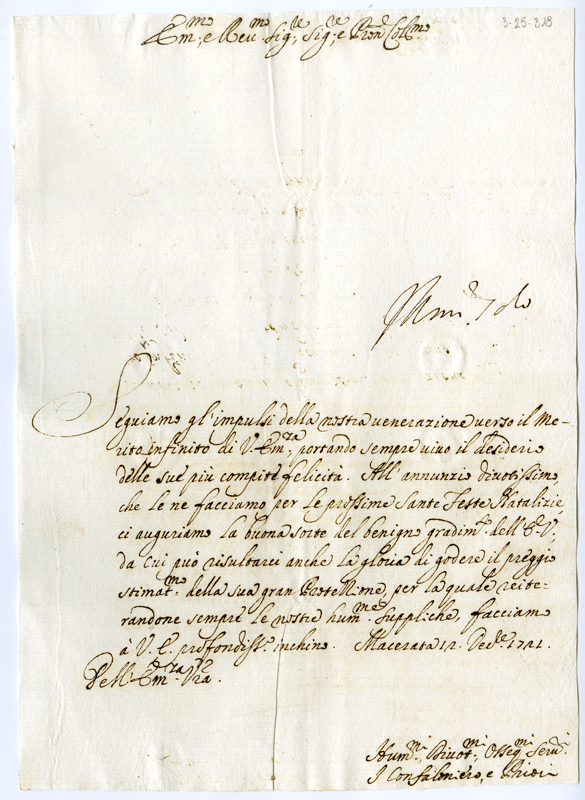 3-25-319
Em.mo e Reu.mo Sig.re Sig.re e Pron Col.mo
Seguiamo gl'impulsi della nostra uenerazione uerso il Me-
rito infinito di V. Em.za, portando sempre uiuo il desiderio
delle sue più compite felicità. All'annunzio diuotissimo,
che le ne facciamo per le prossime Sante Feste Natalizie,
ci auguriamo la buona sorte del benigno gradim.to dell'E. V.
da cui può risultarci anche la gloria di godere il preggio
stimat.mo della sua gran Protez.ne, per la quale reite-
randone sempre le nostre hum.me suppliche, facciamo
à V. E. profondiss.o inchino. Macerata 12. Dec.e 1721.
Dell'Em.za V.ra
Hum.mi Diuot.mi Osseq.mi Seru.i
I Confaloniero, e Priori